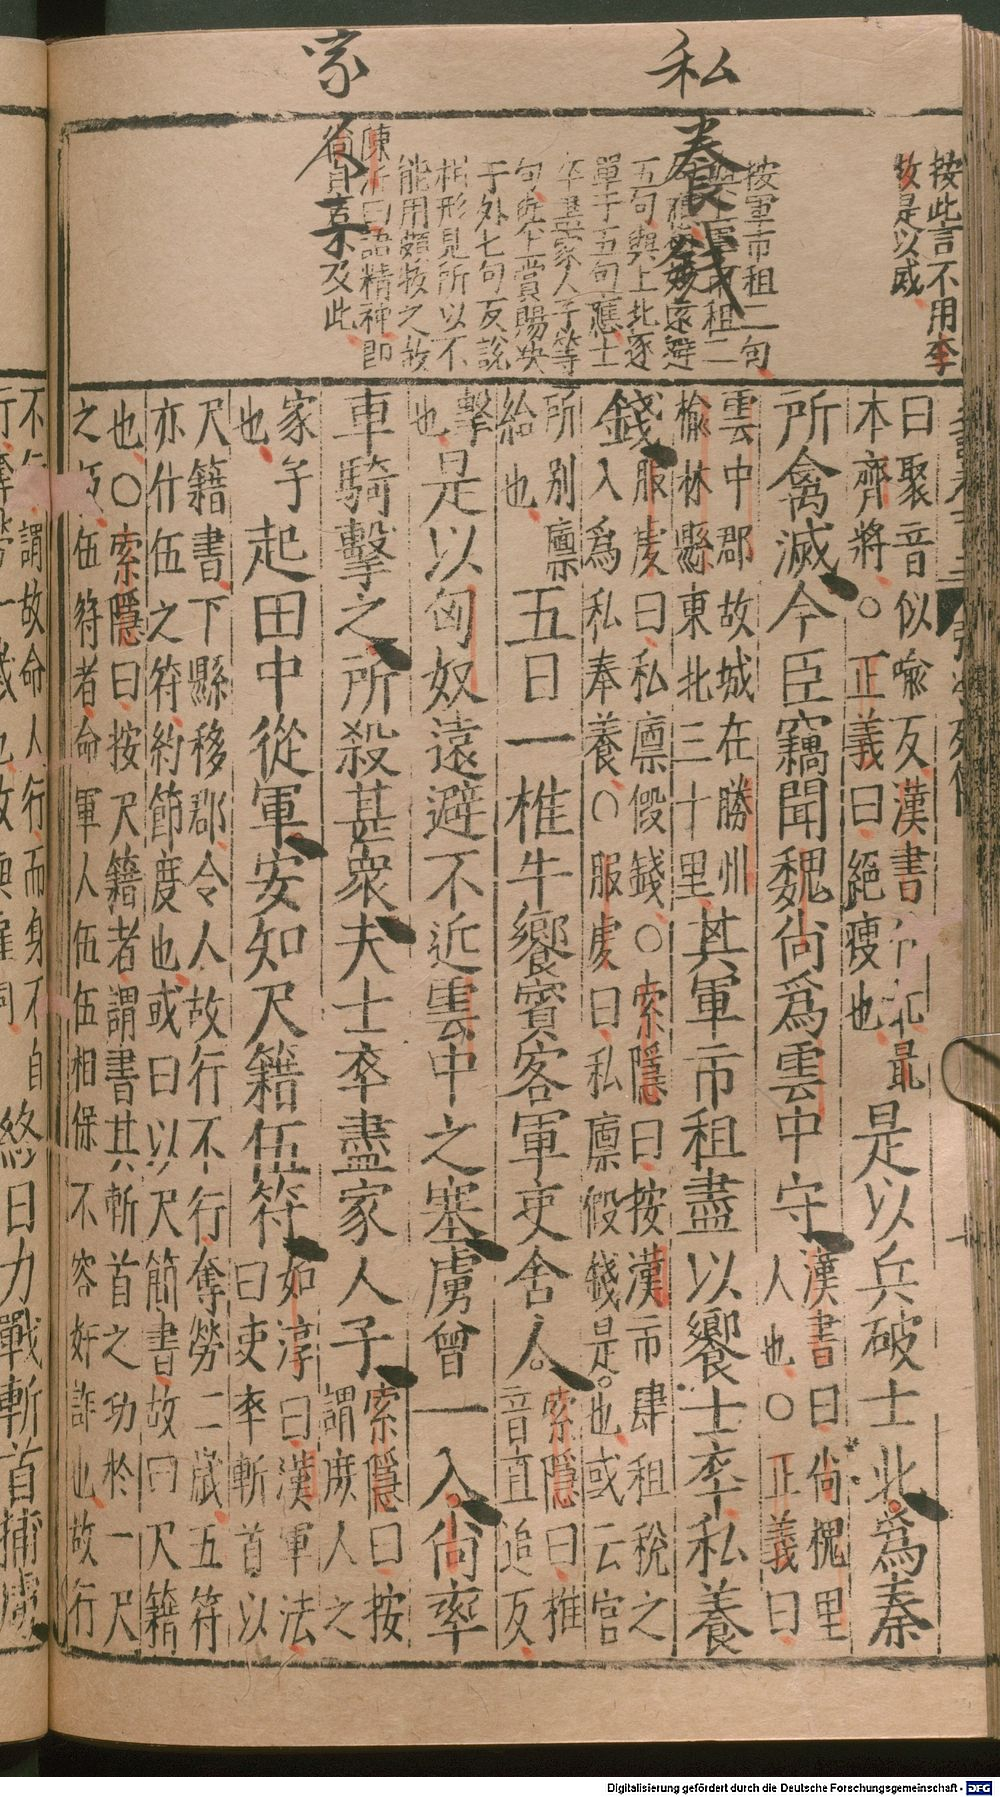 私
家
養錢
人
按此言不用李
牧是以滅
按軍市租二句
五句與上北逐
單于五句應士
卒盡家人子等
句坐上賞賜決
于外七句反說
相形見所以不
能用頗牧之故
陳沂曰語精神即
尚自言不及此
曰聚音似喻反漢書作北最
本齊將○正義曰絕瘦也
是以兵破士北爲秦
所禽滅今臣竊聞魏尚爲雲中守
漢書曰尚槐里
人也○正義曰
雲中郡故城在勝州
榆林縣東北三十里
其軍市租盡以饗士卒私養
錢
服虔曰私廩假錢○索隱曰按漢市肆租稅之
入爲私奉養○服虔曰私廩假錢是也或云官
所別廩
給也
五日一椎牛饗賓客軍吏舍人
索隱曰椎
音直追反
擊
也
是以匈奴遠避不近雲中之塞虜曾一入尚率
車騎擊之所殺甚衆夫士卒盡家人子
索隱曰按
謂庶人之
家子
也
起田中從軍安知尺籍伍符
如淳曰漢軍法
曰吏卒斬首以
尺籍書下縣移郡令人故行不行奪勞二歲五符
亦什伍之符約節度也或曰以尺簡書故曰尺籍
也○索隱曰按尺籍者謂書其斬首之功於一尺
之板伍符者命軍人伍伍相保不容奸詐也故行
不行謂故命人行而身不自
終日力戰斬首捕虜
Digitalisierung gefördert durch die Deutsche Forschungsgemeinschaft - DFG